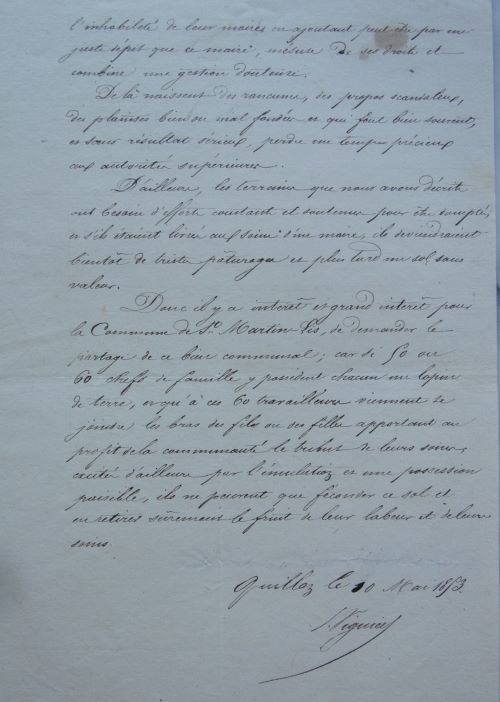 l'inhabilité de leur maires en ajoutant peut être par un
juste dépit que ce maire, mésuse de ses droits et
combine une gestion douteuse.
De là naissent des rancunes, des propos scandaleux,
des plaintes bien ou mal fondées et qui font bien souvent,
et sans résultat sérieux, perdre un temps précieux
aux autorités supérieures.
D'ailleurs, les terrains que nous avons décrits
ont besoin d'efforts constants et soutenus pour être domptés,
et s'ils étaient livrés aux soins d'un maire, ils deviendraient
bientôt de tristes pâturages et plus tard un sol sans
valeur.
Donc il y a intérêt et grand intérêt pour
la Commune de St. Martin Lis, de demander le
partage de ce bien communal; car si 50 ou
60 chefs de famille y possèdent chacun un lopin
de terre, et qu'à ces 60 travailleurs viennent se
joindre les bras des fils ou des filles apportant au
profit de la communauté le tribut de leurs soins,
excités d'ailleurs par l'émulation et une possession
paisible, ils ne peuvent que féconder ce sol et
en retirer sûrement le fruit de leur labeur et de leurs
soins.
Quillan le 10 Mai 1853.